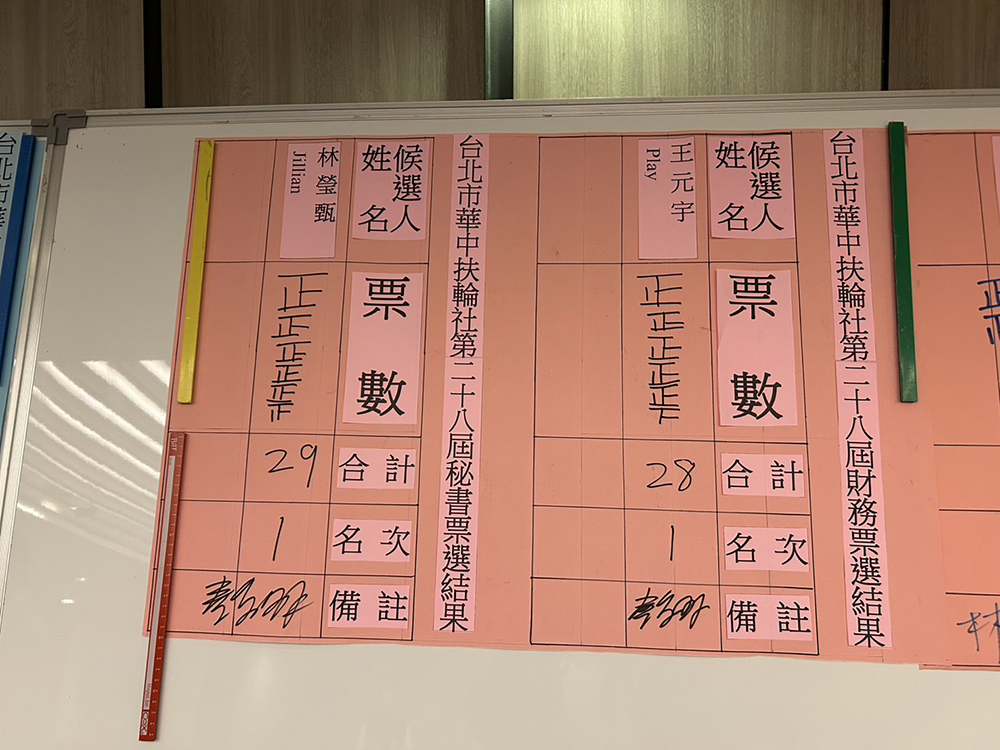 台北市華中扶輪社第二十八屆財務票選結果
候選人
姓名
王元宇
Play
票數
正正正正正
合計
28
名次
1
備註
台北市華中扶輪社第二十八屆秘書票選結果
候選人
姓名
林瑩甄
Jillian
票數
正正正正正
合計
29
名次
1
備註
台北市華